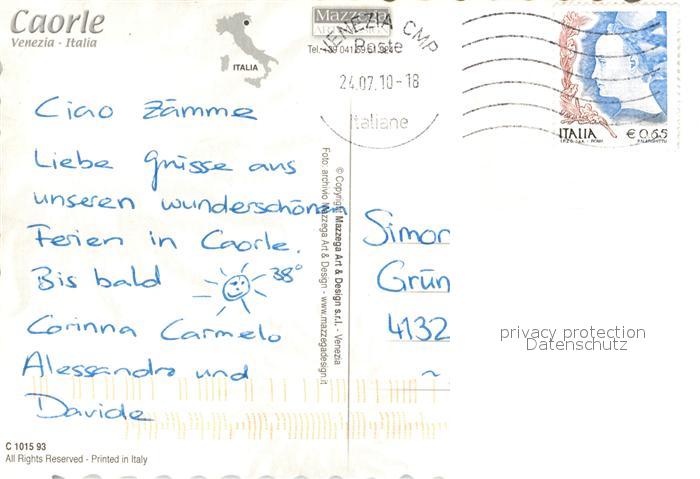 Caorle
Venezia - Italia
ITALIA
Mazzega
ART & DESIGN
VENEZIA CMP
Poste
24.07.10-18
Italiane
ITALIA € 0,65
Ciao zämme
Liebe grüsse aus
unseren wunderschönen
Ferien in Caorle.
Bis bald 38°
Corinna Carmelo
Alessandro und
Davide
© Copyright Mazzega Art & Design s.r.l. - Venezia
Foto: archivio Mazzega Art & Design - www.mazzegadesign.it
Simon
Grün
4132
~
privacy protection
Datenschutz
C 1015 93
All Rights Reserved - Printed in Italy